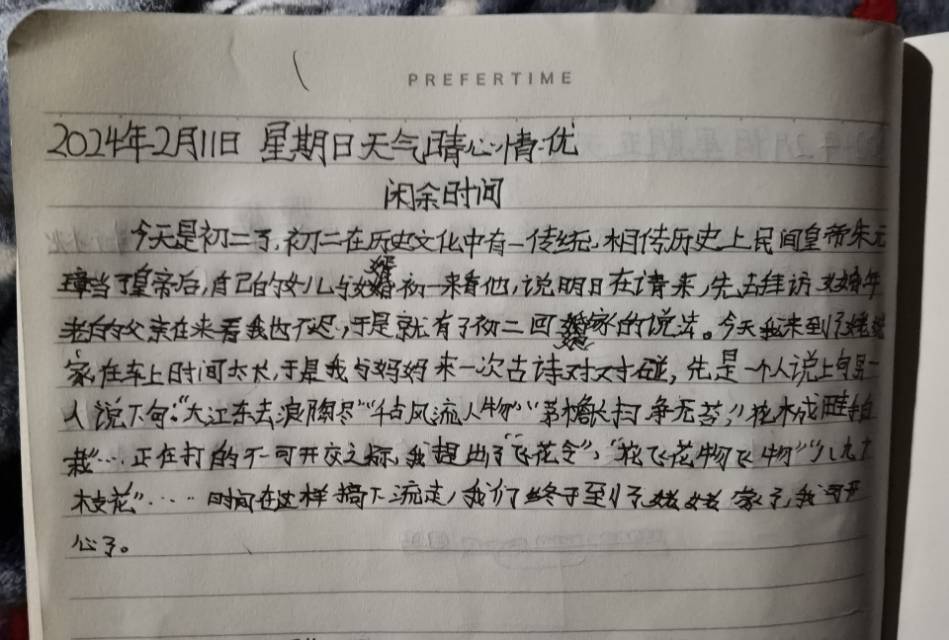 PREFERTIME
2024年2月11日 星期日天气晴心情优
闲余时间
今天是初二了,初二在历史文化中有一传统,相传历史上民间皇帝朱元
璋当了皇帝后,自己的女儿与女婿初一来看他,说明日在请来,先去拜访
老的父亲在来看我也不迟,于是就有了初二回家的说法。今天我来到了姥姥
家,在车上时间太长,于是我与妈妈来一次古诗对对碰,先是一个人说上句另一
人说下句:“大江东去浪陶尽”“千古风流人物”“茅檐长扫净无苔”“花木成畦手自
栽”…正在打的不可开交之际,我提出了“飞花令”,“花飞花物飞物”“八九十
枝花”……时间在这样搞下流走,我们终于到了姥姥家了,我可开
心了。